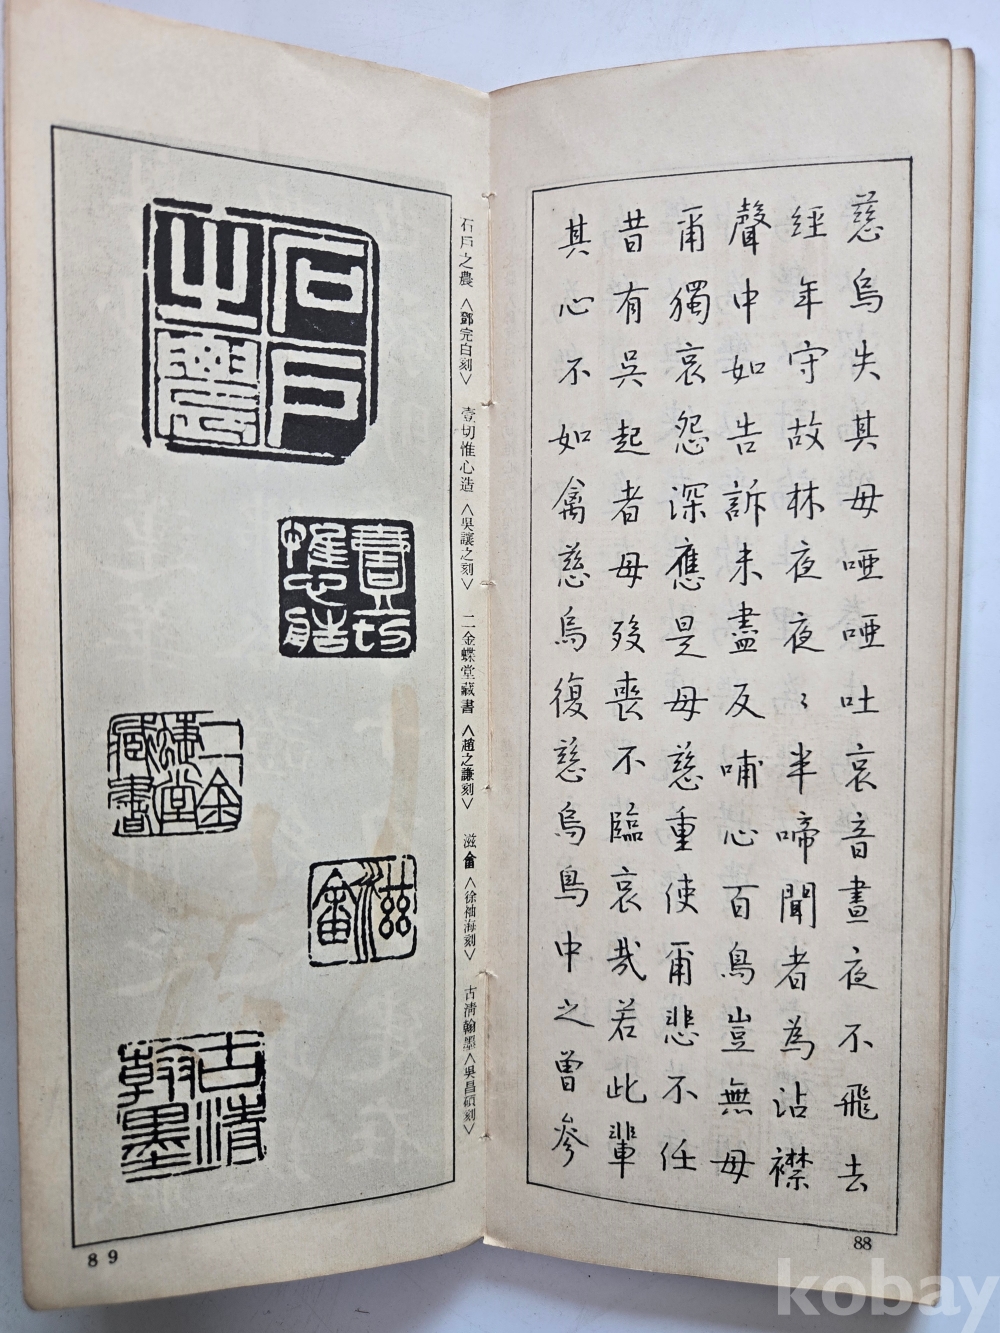 慈烏失其母啞啞吐哀音晝夜不飛去
經年守故林夜夜〻半啼聞者為沾襟
聲中如告訴未盡反哺心百鳥豈無母
甭獨哀怨深應是母慈重使甭悲不任
昔有吳起者母歿喪不臨哀哉若此輩
其心不如禽慈烏復慈烏鳥中之曾參
88
石戶之農〈鄧完白刻〉 壹切惟心造〈吳讓之刻〉 二金蝶堂藏書〈趙之謙刻〉 滋畬〈徐袖海刻〉 古淸翰墨〈吳昌碩刻〉
石戶
之農
壹切
惟心造
二金
蝶堂
藏書
滋
畬
古清
翰墨
89
kobay